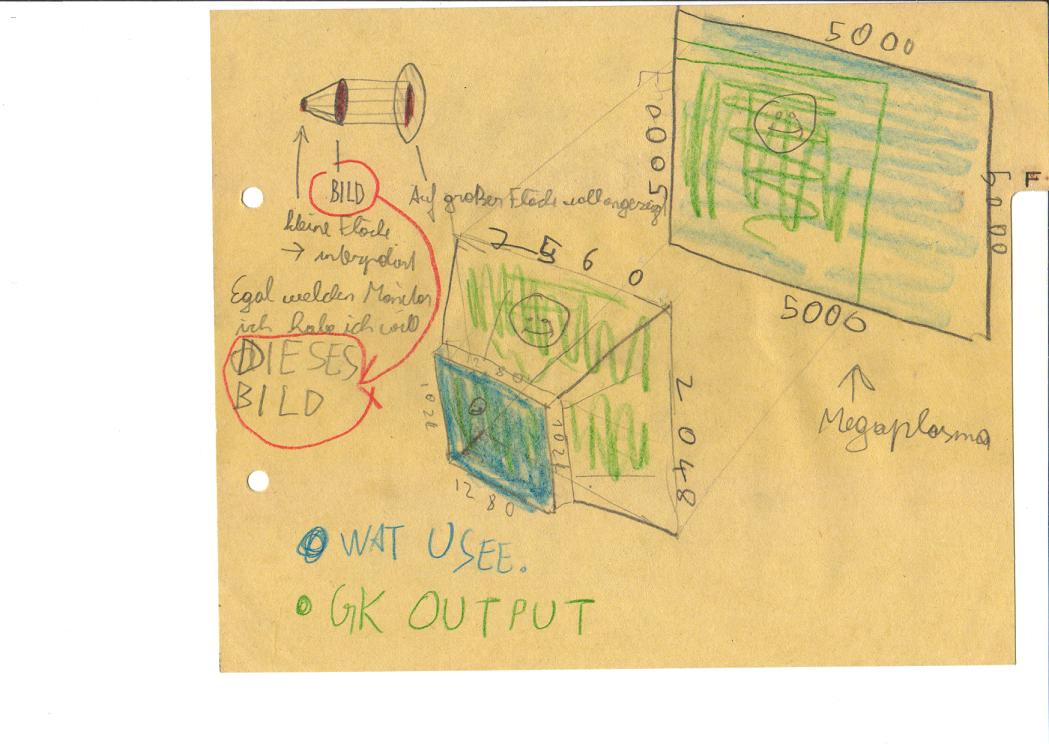 5000
5000
5000
5000
F
BILD
Auf großer Fläche voll angezeigt
kleine Fläche
→ interpoliert
Egal welchen Monitor
ich habe ich will
DIESES
BILD
2560
2048
1280
1024
1024
1280
Megaplasma
WAT U SEE.
GK OUTPUT